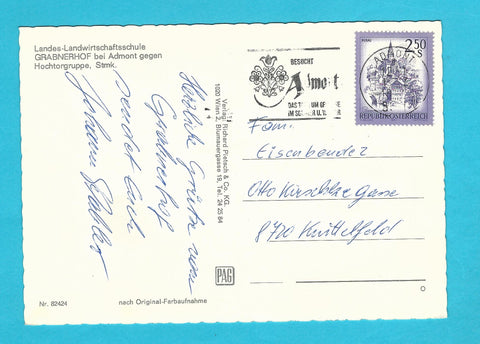 Landes-Landwirtschaftsschule
GRABNERHOF bei Admont gegen
Hochtorgruppe, Stmk.
Herzliche Grüße vom
Grabnerhof
sendet Euch
Johann
Verlag Richard Pietsch & Co. KG.
1020 Wien 2, Blumauergasse 19, Tel. 24 25 84
PAG
Nr. 82424
nach Original-Farbaufnahme
BESUCHT
Admont
DAS
IM
ADMONT
2.50
MURAU
REPUBLIK ÖSTERREICH
Fam.
Eisenbeutel
Otto Kirschlge Gasse
8720 Knittelfeld